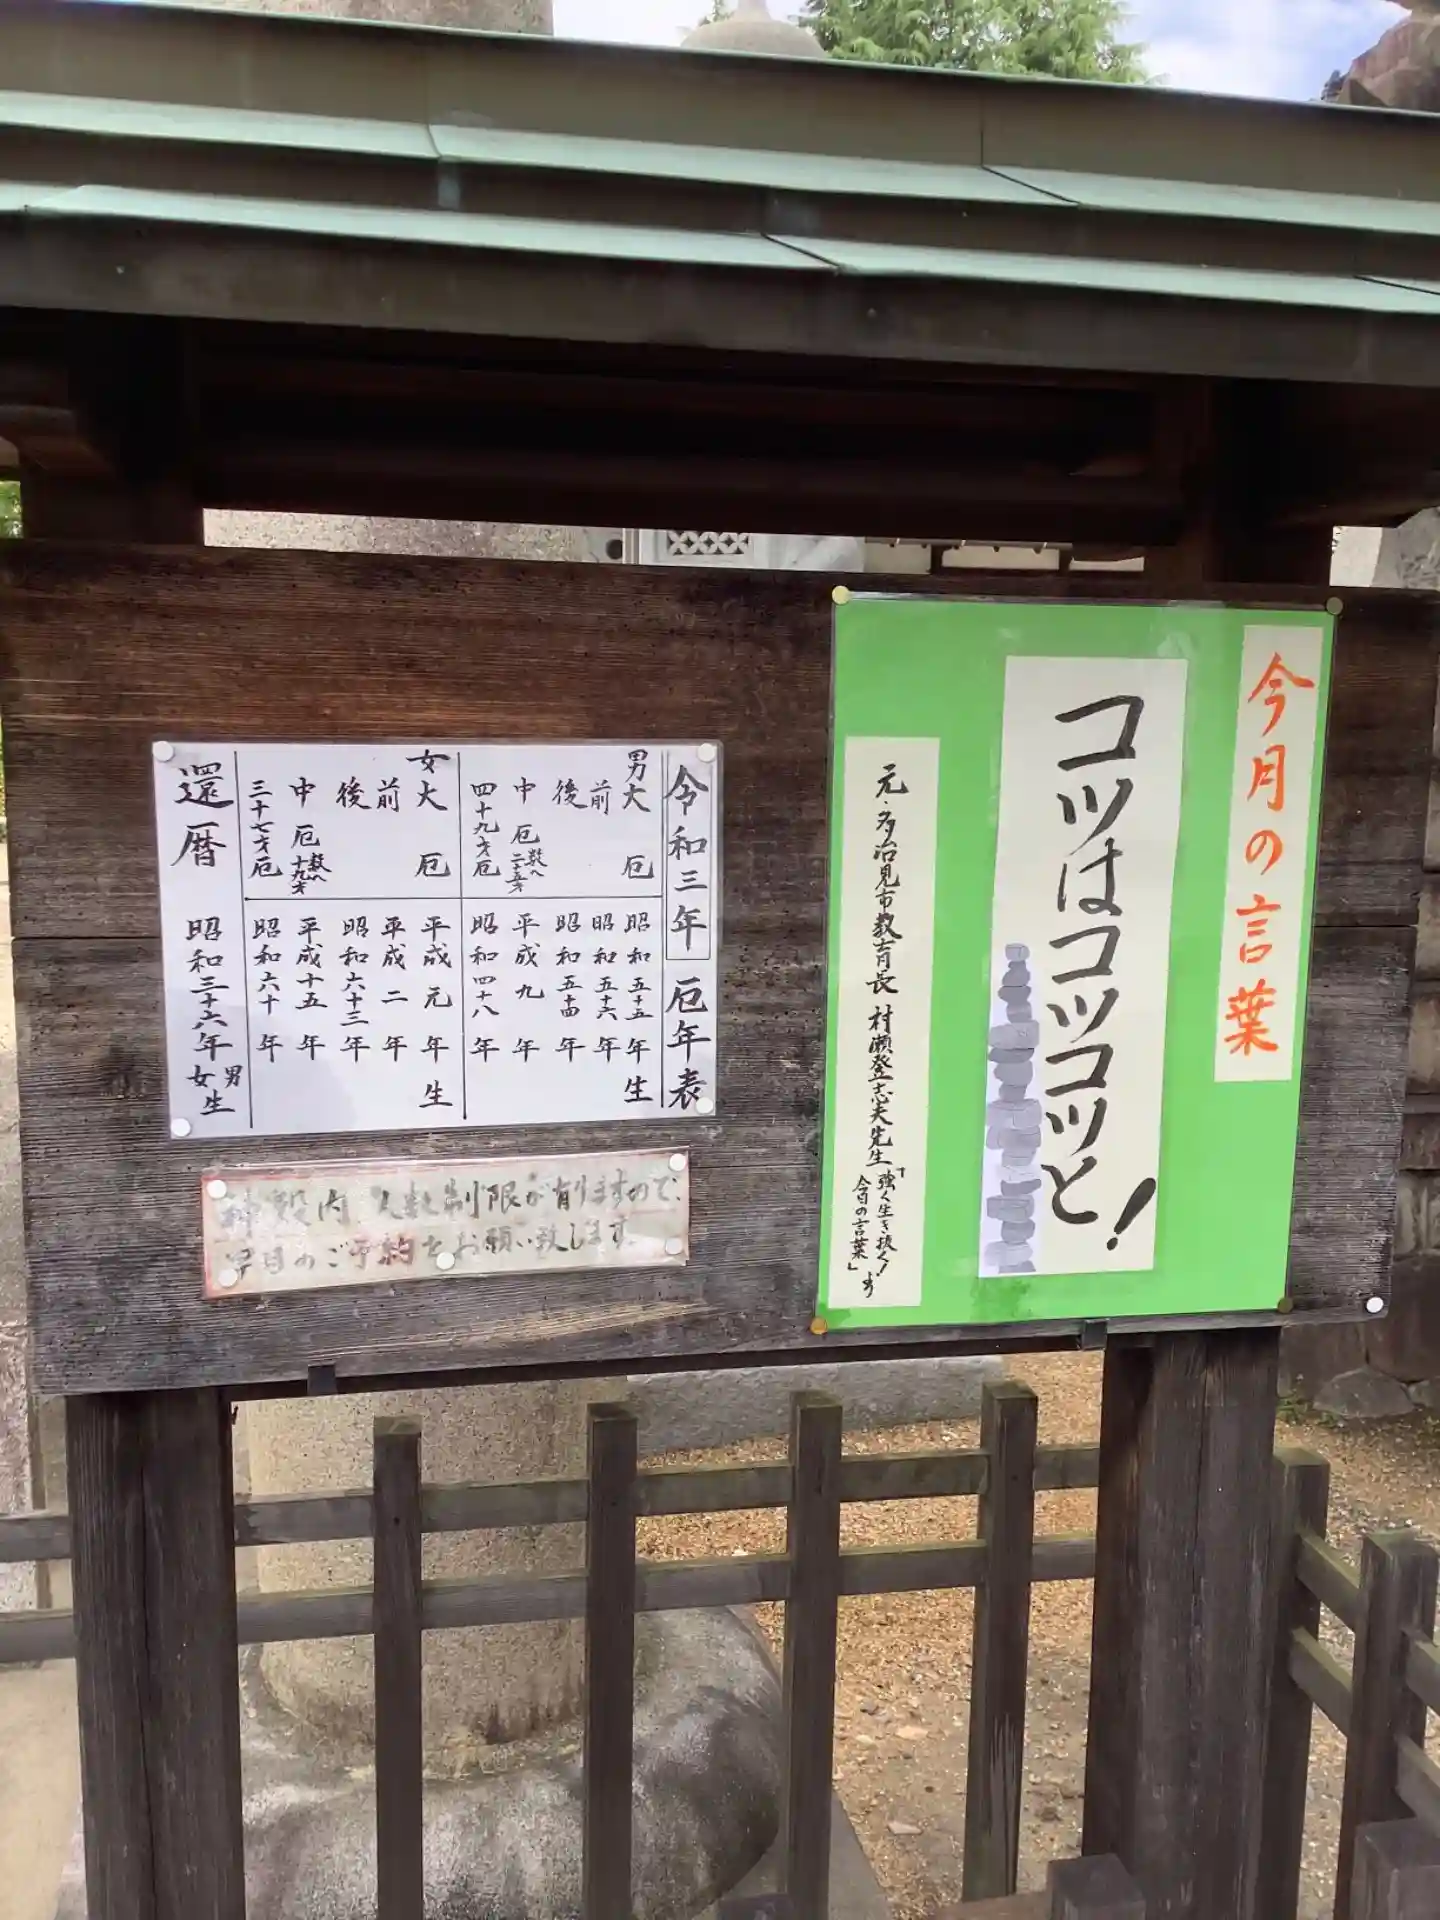 今月の言葉
コツはコツコツと!
元・多治見市教育長 村瀬登志夫先生「強く生き抜く!
今日の言葉」より
令和三年 厄年表
男大厄 昭和五十五年生
前 昭和五十六年
後 昭和五十四年
中厄 数へ二十五才 平成九年
四十九才厄 昭和四十八年
女大厄 平成元年生
前 平成二年
後 昭和六十三年
中厄 数へ十九才 平成十五年
三十七才厄 昭和六十年
還暦 昭和三十六年 男女生
神殿内、人数制限が有りますので、
早目のご予約をお願い致します。